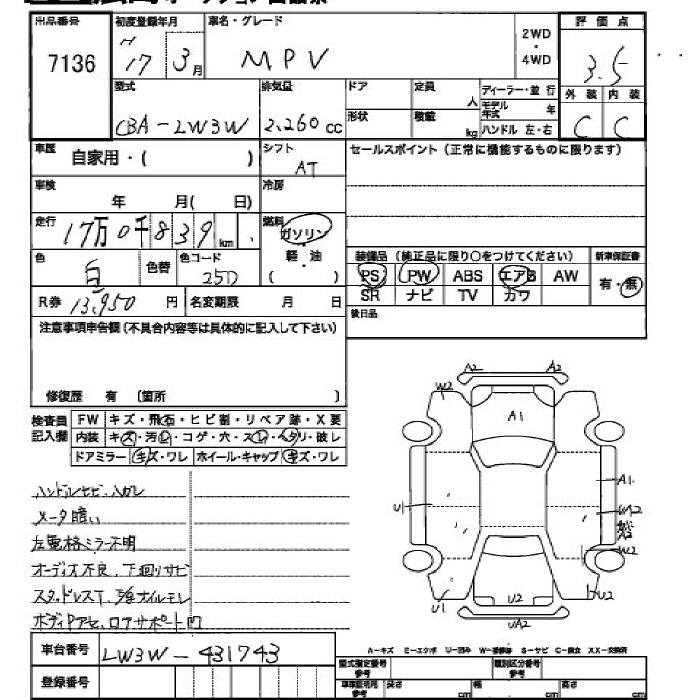 出品番号 初度登録年月 車名・グレード 2WD・4WD 評価点
7136 H 17 3月 MPV 3.5
型式 排気量 ドア 定員 人 ディーラー・並行 外装 内装
CBA-LW3W 2,260cc 形状 積載 kg モデル年式 年 ハンドル 左・右 C C
車歴 自家用・( ) シフト AT セールスポイント(正常に機能するものに限ります)
車検 年 月( 日) 冷房
走行 17万0千839km 燃料 ガソリン
軽・油
( )
色 白 色替 色コード 25D
装備品(純正品に限り○をつけてください) 新車保証書
PS PW ABS エアB AW 有・無
SR ナビ TV カワ
R券 13,950円 名変期限 月 日 後日品
注意事項申告欄(不具合内容等は具体的に記入して下さい)
修復歴 有 〔箇所 〕
検査員記入欄 FW キズ・飛石・ヒビ割・リペア跡・X要
内装 キズ・汚レ・コゲ・穴・スレ・ヘタリ・破レ
ドアミラー キズ・ワレ ホイール・キャップ キズ・ワレ
メータ暗い
左電格ミラー不明
オーディオ不良、下廻りサビ
A2 A2
W2
A1
A1
U1
W2
U1 U2 U2
UA2
車台番号 LW3W-431743
登録番号
A-キズ E-エクボ U-凹み W-補修跡 S-サビ C-腐食 XX-交換済
型式指定番号 参考 類別区分番号 参考
車車証明用 参考 長さ cm 幅 cm 高さ cm